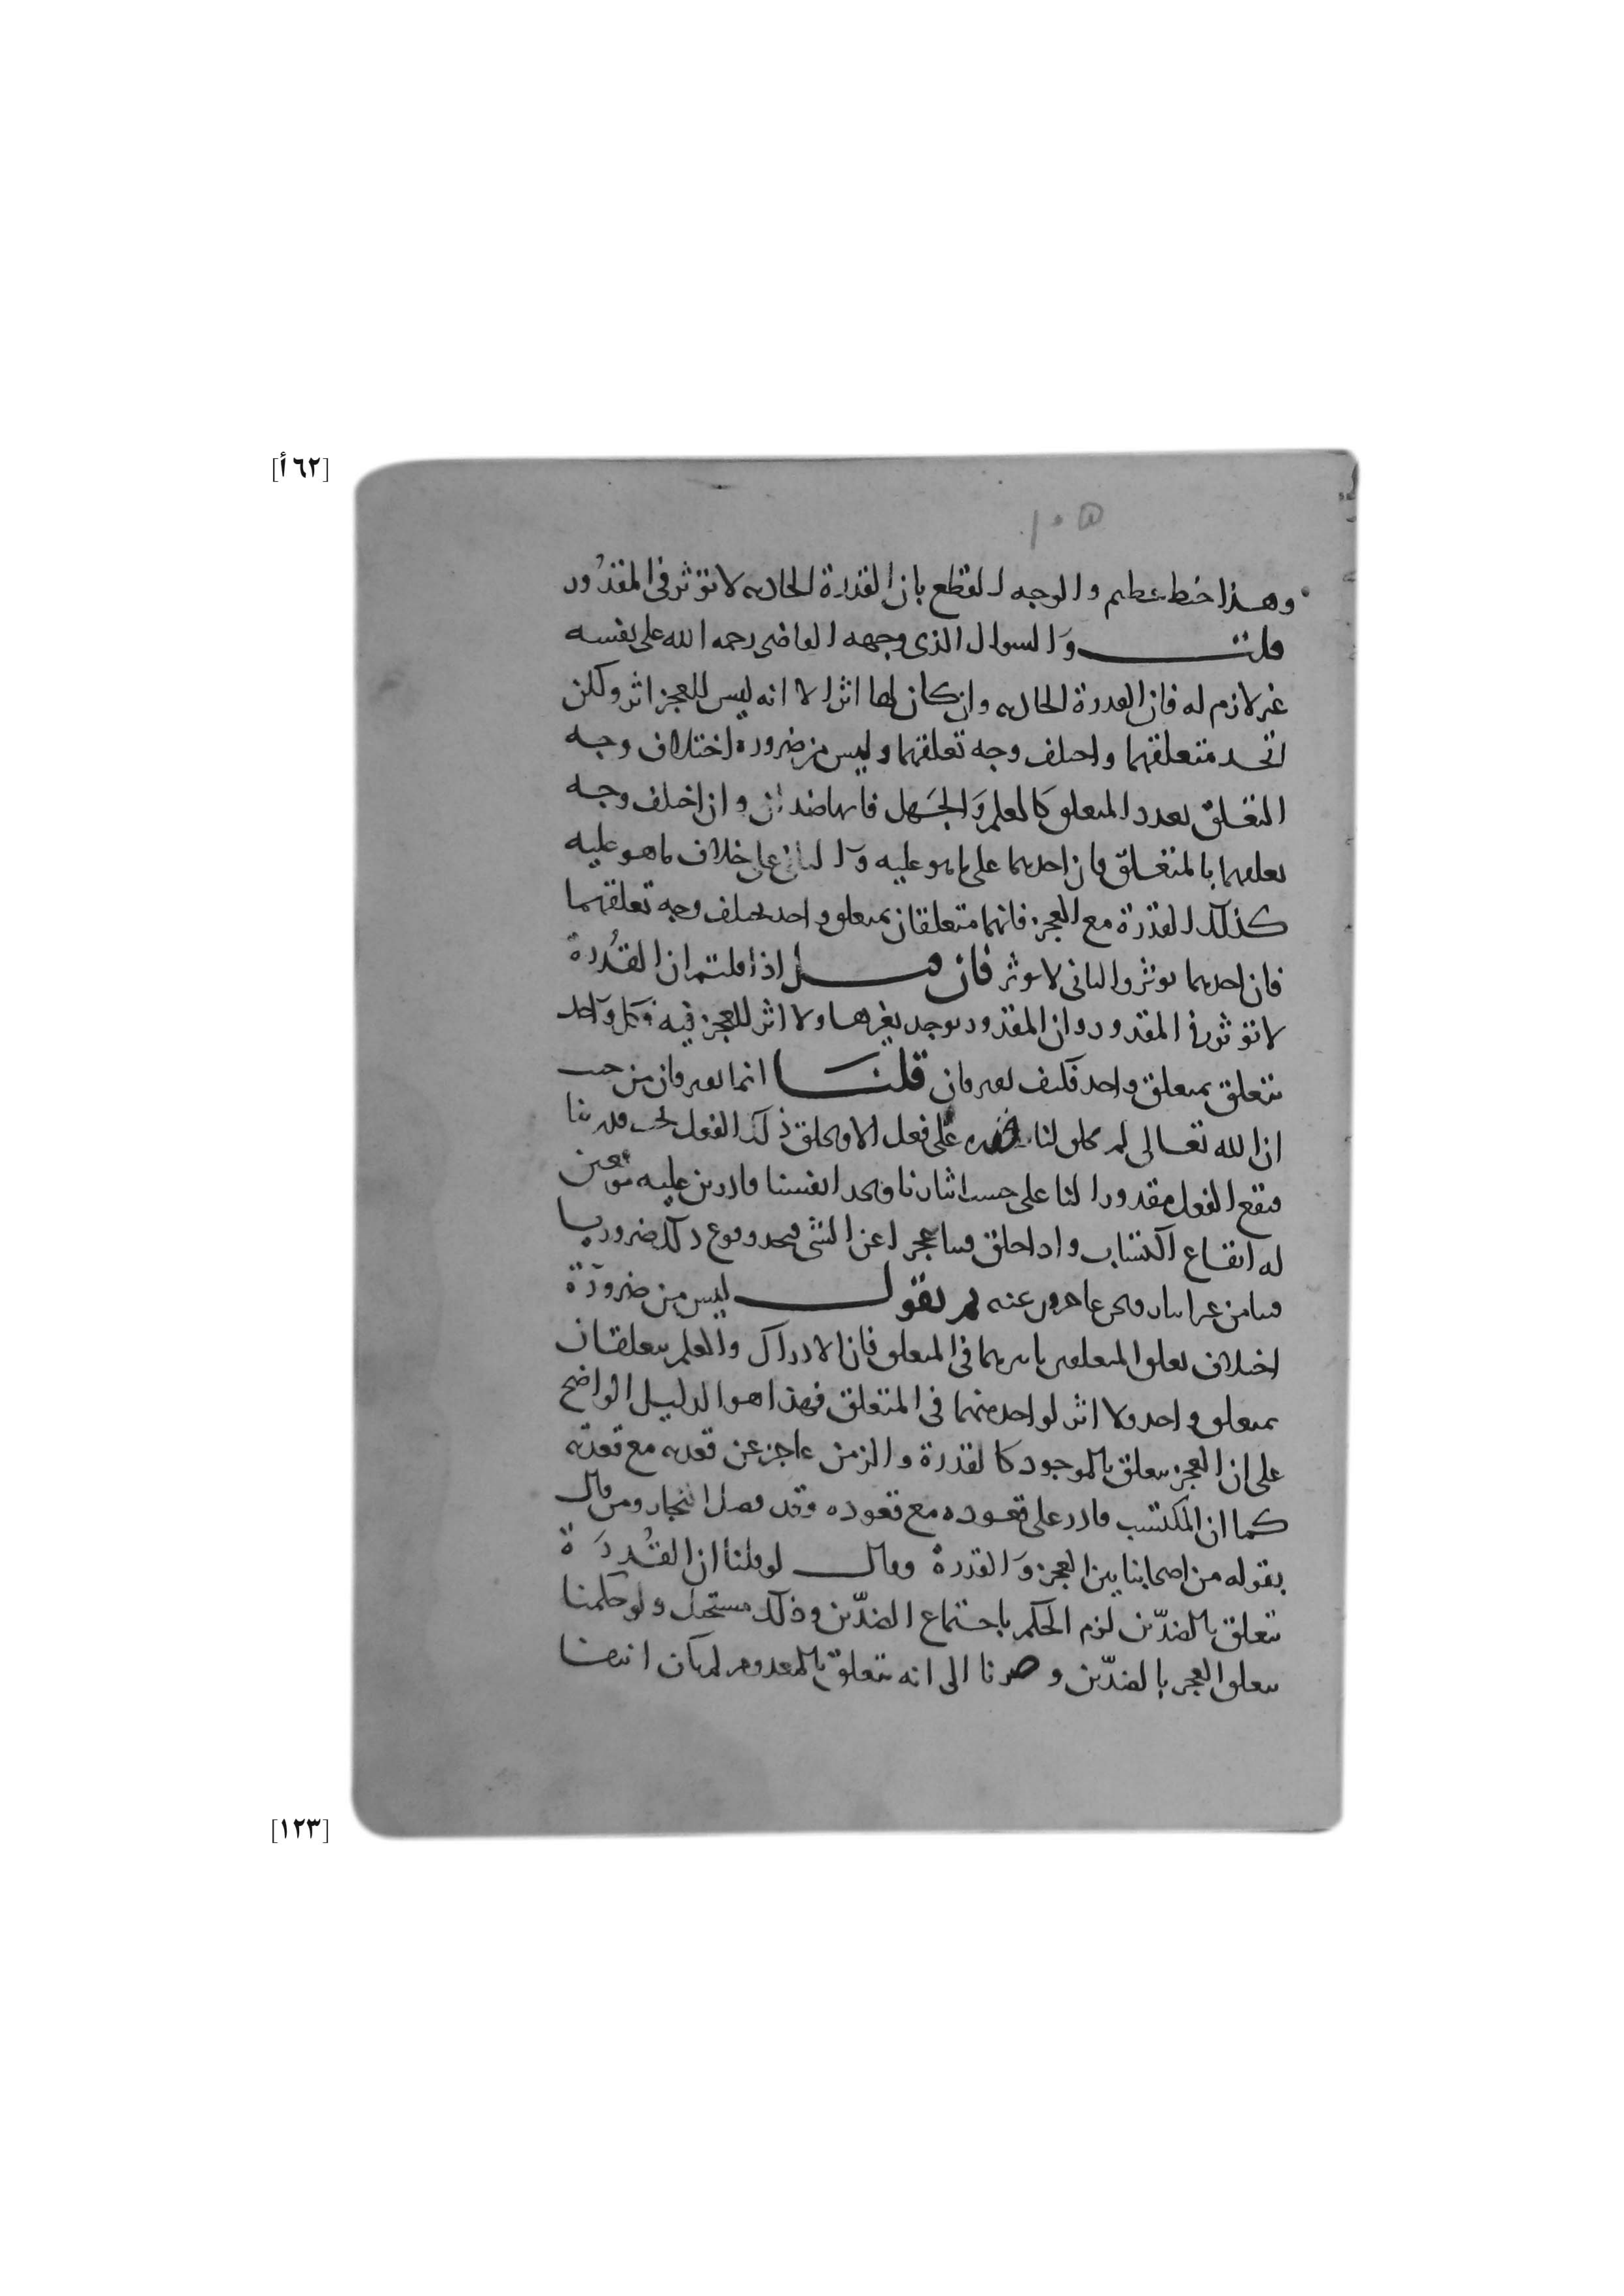 [٦٢ أ]
وهذا خبط عظيم والوجه القطع بان القدرة الحادثه لا تؤثر في المقدور
قلت والسوال الذي وجهه القاضي رحمه الله على نفسه
غير لازم له فان القدرة الحادثه وان كان لها اثر الا انه ليس للعجز اثر ولكن
اتحد متعلقهما واختلف وجه تعلقهما وليس من ضرورة اختلاف وجه
التعلق تعدد المتعلق كالعلم والجهل فانهما ضدان وان اختلف وجه
تعلقهما بالمتعلق فان احدهما على ما هو عليه والثاني على خلاف ما هو عليه
كذلك القدرة مع العجز فانهما متعلقان بمتعلق واحد يختلف وجه تعلقهما
فان احدهما يوثر والثاني لا يوثر فان قيل اذا قلتم ان القدرة
لا تؤثر في المقدور وان المقدور يوجد بغيرها ولا اثر للعجز فيه وكل واحد
يتعلق بمتعلق واحد فكيف يفترقان قلنا انما يفترقان من حيث
ان الله تعالى لم يخلق لنا قدرة على فعل الا ويخلق ذلك الفعل تحت قدرتنا
فيقع الفعل مقدورا لنا على حسب اثارنا ونجد انفسنا قادرين عليه موقعين
له ايقاع اكتساب واذا خلق فينا عجزا عن الشي فنجد وقوع ذلك ضروريا
فينا من غير ايثار ونحن عاجزون عنه ثم نقول ليس من ضرورة
اختلاف تعلق المتعلقين تاثيرهما في المتعلق فان الادراك والعلم يتعلقان
بمتعلق واحد ولا اثر لواحد منهما في المتعلق فهذا هو الدليل الواضح
على ان العجز يتعلق بالموجود كالقدرة والزمن عاجز عن قعدته مع قعدته
كما ان المكتسب قادر على قعوده مع قعوده وقد فصل النجار ومن قال
بقوله من اصحابنا بين العجز والقدرة وقال لو قلنا ان القدرة
تتعلق بالضدين لزم الحكم باجتماع الضدين وذلك مستحيل ولو حكمنا
بتعلق العجز بالضدين وصرنا الى انه يتعلق بالمعدوم لكان
[١٢٣]